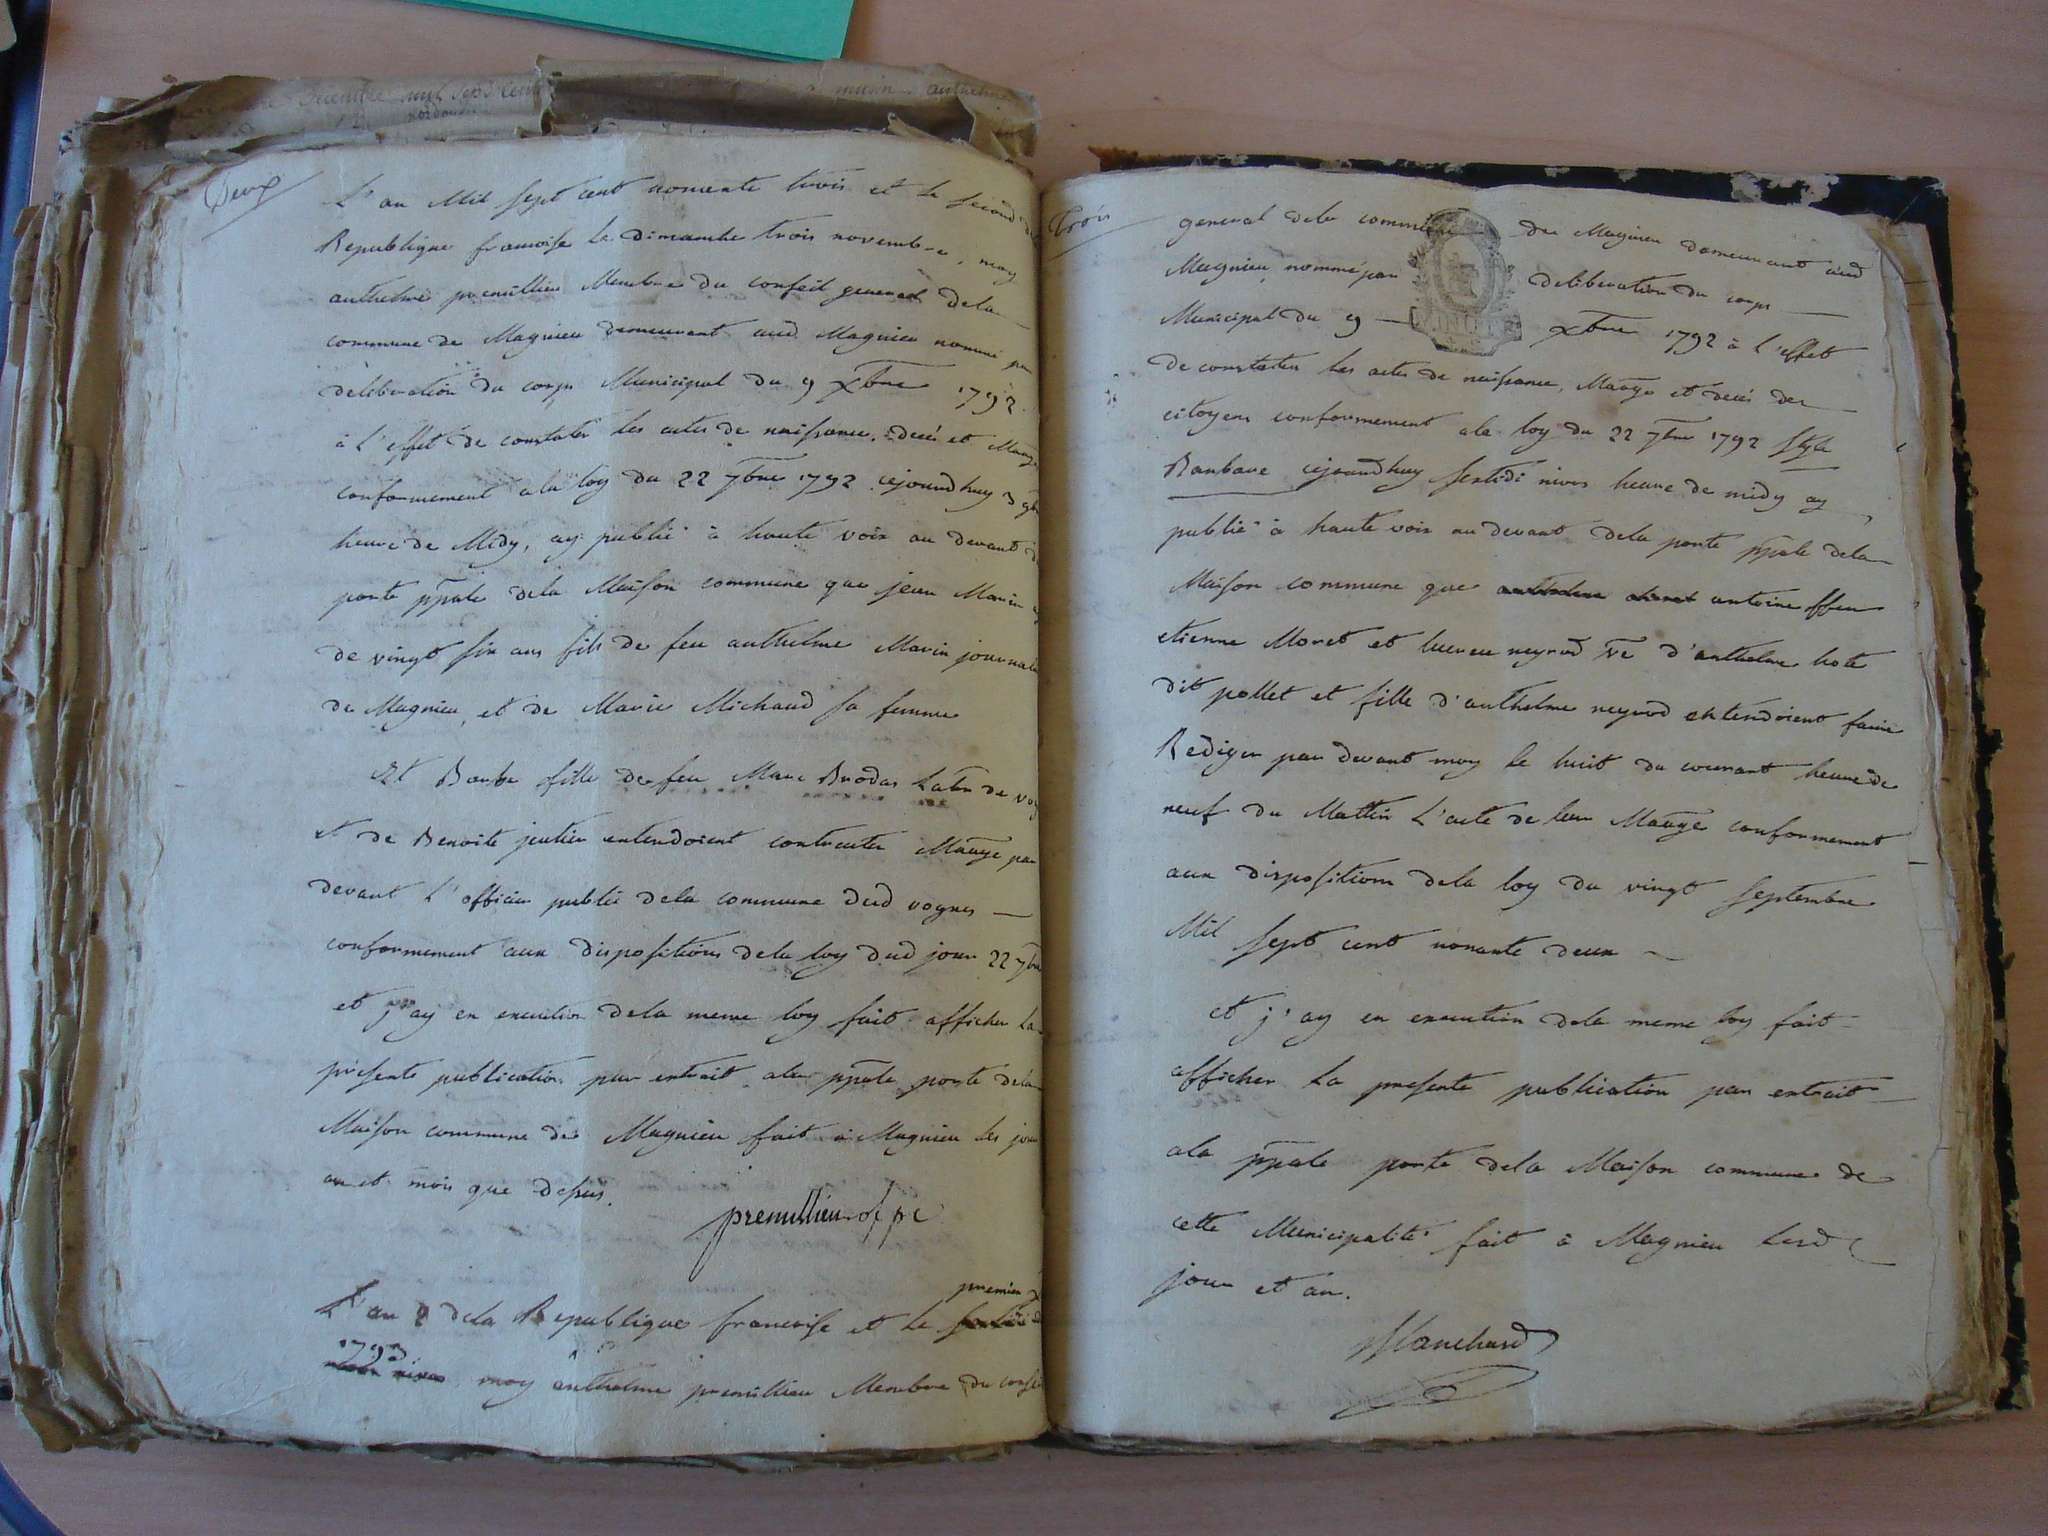 Deux
L'an Mil sept cent nonante trois et le second de
Republique francoise le dimanche trois novembre, moy
anthelme premillieu Membre du conseil general dela
commune de Magnieu demeurant aud Magnieu nommé par
deliberation du corps Municipal du 9 xbre 1792.
à l'effet de constater les actes de naissance, decés et Mariage
conformement ala loy du 22 7bre 1792 cejourdhuy 3 9bre
heure de Midy, ay publié à haute voix au devant de
porte ppale dela Maison commune que jean Marin
de vingt six ans fils de feu anthelme Marin journalier
de Magnieu, et de Marie Michaud sa femme
Et Barbe fille de feu Marc Brodas Labr de
et de Benoite jeutier entendoient contracter Mariage par
devant l'officier public dela commune dud vognes
conformement aux dispositions dela loy dud jour 22 7bre
et j'ay en execution dela meme loy fait afficher La
presente publication par extrait ala ppale porte dela
Maison commune de Magnieu fait à Magnieu les jour
an et mois que dessus.
premillieu of pc
premier
L'an 2 dela Republique francoise et le
1793
moy anthelme premillieu Membre du conseil
Trois
general dela commune de Magnieu demeurant aud
Magnieu, nommé par deliberation du corps
MINUTE
Municipal du 9 xbre 1792 à l'effet
de constater les actes de naissance, Mariage et decés des
citoyens conformement ala loy du 22 7bre 1792 style
Barbare cejourdhuy sextidi nivos heure de midy ay
publié à haute voix au devant dela porte ppale dela
Maison commune que antoine ffeu
etienne Moret et neyrod ve d'anthelme hote
dit pollet et fille d'anthelme neyrod entendoient faire
Rediger par devant moy le huit du courant heure de
neuf du Mattin L'acte de leur Mariage conformement
aux dispositions dela loy du vingt septembre
Mil sept cent nonante deux
et j'ay en execution dela meme loy fait
afficher La presente publication par extrait
ala ppale porte dela Maison commune de
cette Municipalité fait à Magnieu Lesd
jour et an.
Blanchard